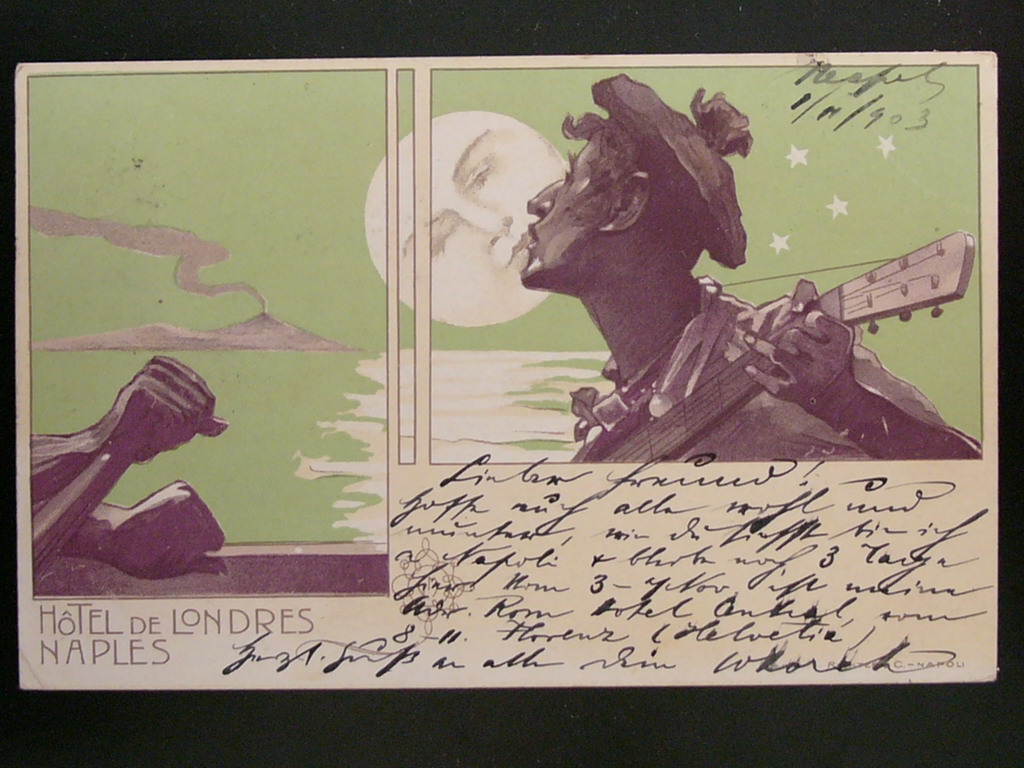 Neapel
1/11/903
Lieber Freund!
Hoffe euch alle wohl und
munter, wie du siehst bin ich
Napoli & bleibe noch 3 Tage
hier Vom 3-7 Nov ist meine
Adr. Rom Hotel Central, vom
8-11. Florenz (Helvetia)
Herzl. Gruß an alle Dein
HÔTEL DE LONDRES
NAPLES
C.-NAPOLI